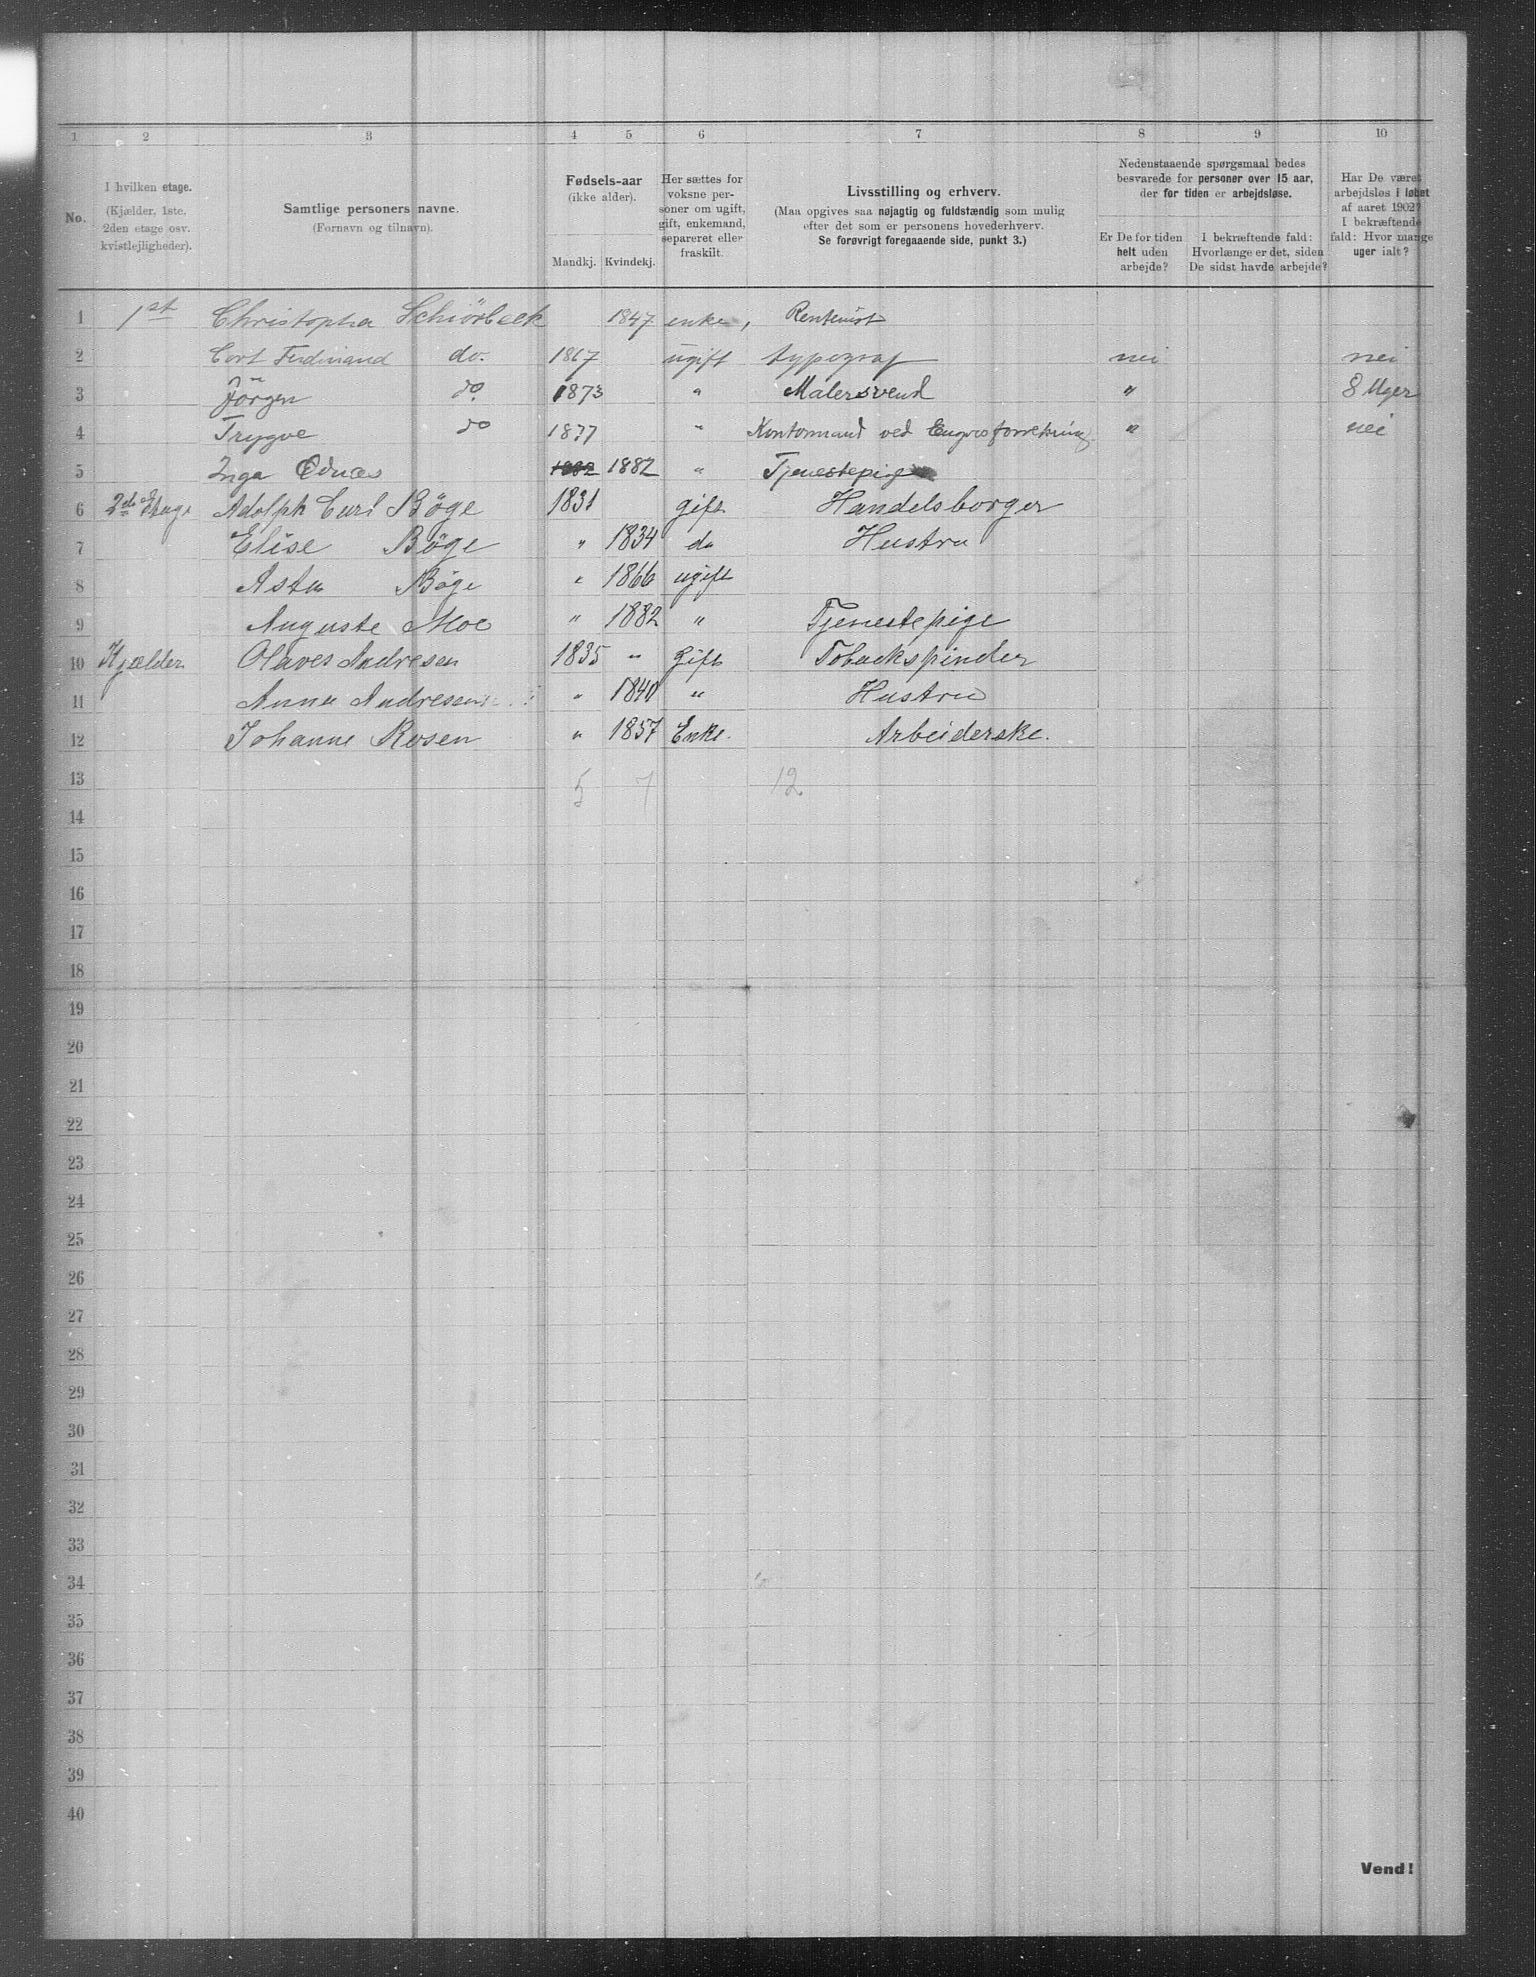 1 2 3 4 5 6 7 8 9 10
No.
I hvilken etage.
(Kjælder, 1ste,
2den etage osv.
kvistlejligheder).
Samtlige personers navne.
(Fornavn og tilnavn).
Fødsels-aar
(ikke alder).
Mandkj. Kvindekj.
Her sættes for
voksne per-
soner om ugift,
gift, enkemand,
separeret eller
fraskilt.
Livsstilling og erhverv.
(Maa opgives saa nøjagtig og fuldstændig som mulig
efter det som er personens hovederhverv.
Se forøvrigt foregaaende side, punkt 3.)
Nedenstaaende spørgsmaal bedes
besvarede for personer over 15 aar,
der for tiden er arbejdsløse.
Er De for tiden
helt uden
arbejde?
I bekræftende fald:
Hvorlænge er det, siden
De sidst havde arbejde?
Har De været
arbejdsløs i løbet
af aaret 1902?
I bekræftende
fald: Hvor mange
uger ialt?
1 1st Christopha Schiørbeck 1847 enke, Rentenist
2 Cort Ferdinand do. 1867 ugift typograf nei nei
3 Jörgen do 1873 " Malersvend " 8 Uger
4 Trygve do 1877 " Kontormand ved Engrosforretning " nei
5 Inga 1882 1882 " Tjenestepige
6 2den Etage Adolph Curt Böge 1831 gift Handelsborger
7 Elise Böge " 1834 do Hustru
8 Asta Böge " 1866 ugift
9 Auguste Moe " 1882 " Tjenestepige
10 Kjælder Olaves Andresen 1835 " Gift Tobackspinder
11 Anna Andresen " 1840 " Hustru
12 Johanne Rosen " 1857 Enke. Arbeiderske.
13 5 7 12
14
15
16
17
18
19
20
21
22
23
24
25
26
27
28
29
30
31
32
33
34
35
36
37
38
39
40
Vend!